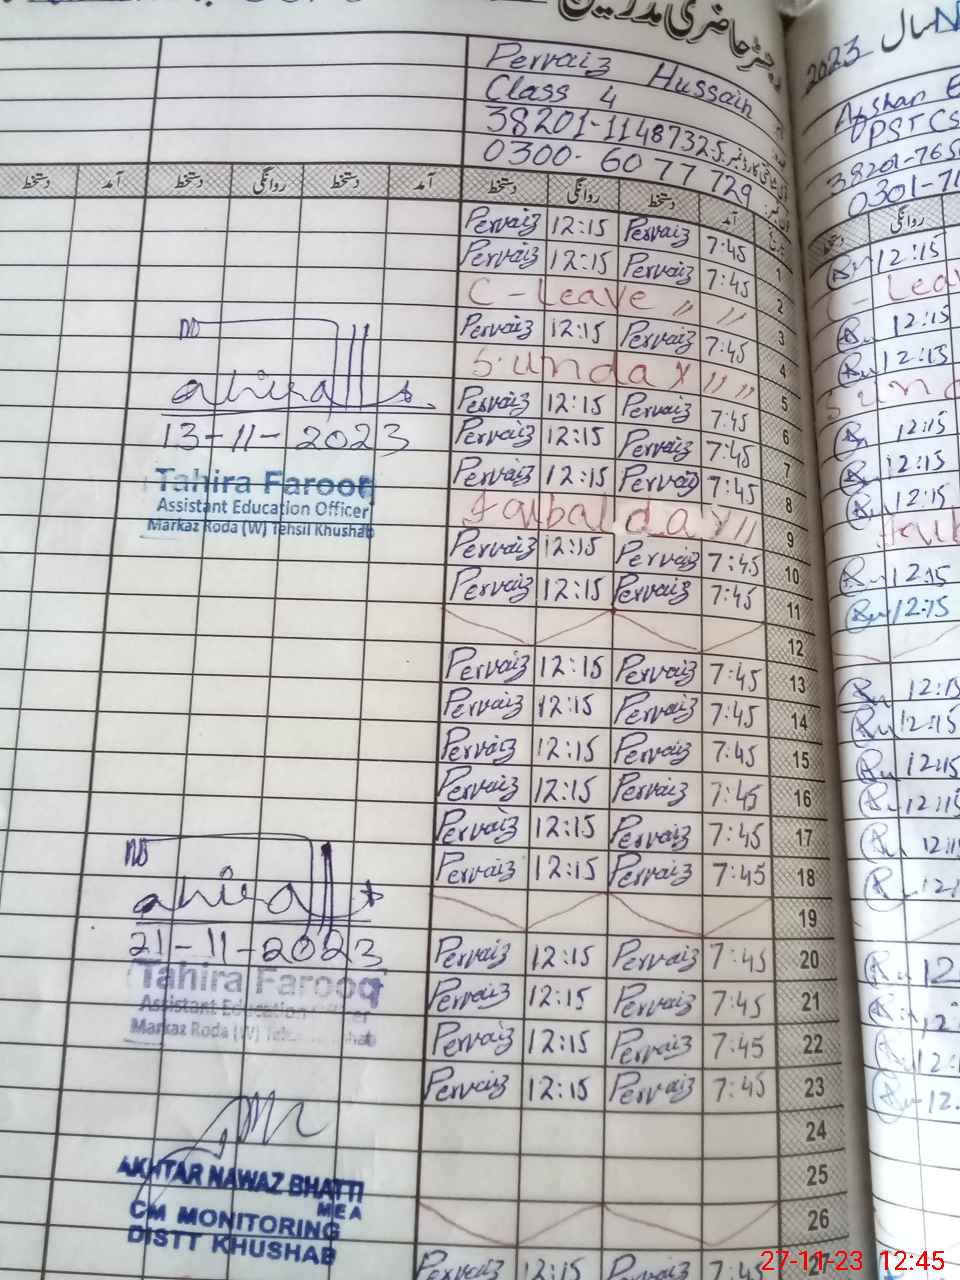 رجسٹر حاضری مدرسین
Pervaiz Hussain
Class 4
38201-1148732-5
0300-6077729
آمد دستخط روانگی دستخط آمد دستخط روانگی دستخط
1 7:45 Pervaiz 12:15 Pervaiz
2 7:45 Pervaiz 12:15 Pervaiz
3 C-Leave " "
4 7:45 Pervaiz 12:15 Pervaiz
5 Sunday " "
6 7:45 Pervaiz 12:15 Pervaiz
7 7:45 Pervaiz 12:15 Pervaiz
8 7:45 Pervaiz 12:15 Pervaiz
9 Iqbal day "
10 7:45 Pervaiz 12:15 Pervaiz
11 7:45 Pervaiz 12:15 Pervaiz
12
13 7:45 Pervaiz 12:15 Pervaiz
14 7:45 Pervaiz 12:15 Pervaiz
15 7:45 Pervaiz 12:15 Pervaiz
16 7:45 Pervaiz 12:15 Pervaiz
17 7:45 Pervaiz 12:15 Pervaiz
18 7:45 Pervaiz 12:15 Pervaiz
19
20 7:45 Pervaiz 12:15 Pervaiz
21 7:45 Pervaiz 12:15 Pervaiz
22 7:45 Pervaiz 12:15 Pervaiz
23 7:45 Pervaiz 12:15 Pervaiz
24
25
26
27 7:45 Pervaiz 12:15 Pervaiz
13-11-2023
Tahira Farooq
Assistant Education Officer
Markaz Roda (W) Tehsil Khushab
21-11-2023
Tahira Farooq
Assistant Education Officer
Markaz Roda (W)
AKHTAR NAWAZ BHATTI
MEA
CM MONITORING
DISTT KHUSHAB
سال 2023
Afshan
PST
38201-765
0301-71
روانگی دستخط
12:15
12:15
12:15
12:15
12:15
12:15
12:15
12:15
12:15
12:15
12:15
27-11-23 12:45